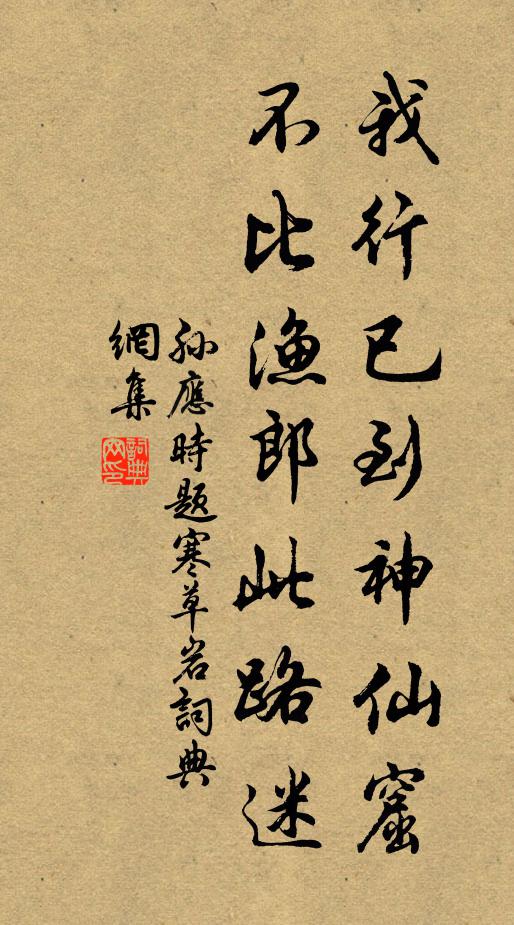 我行已到神仙窟
不比漁郎此路迷
孙應時題寒草岩詞典
網集
詞典
网印